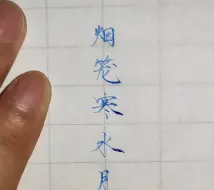 烟笼寒水月